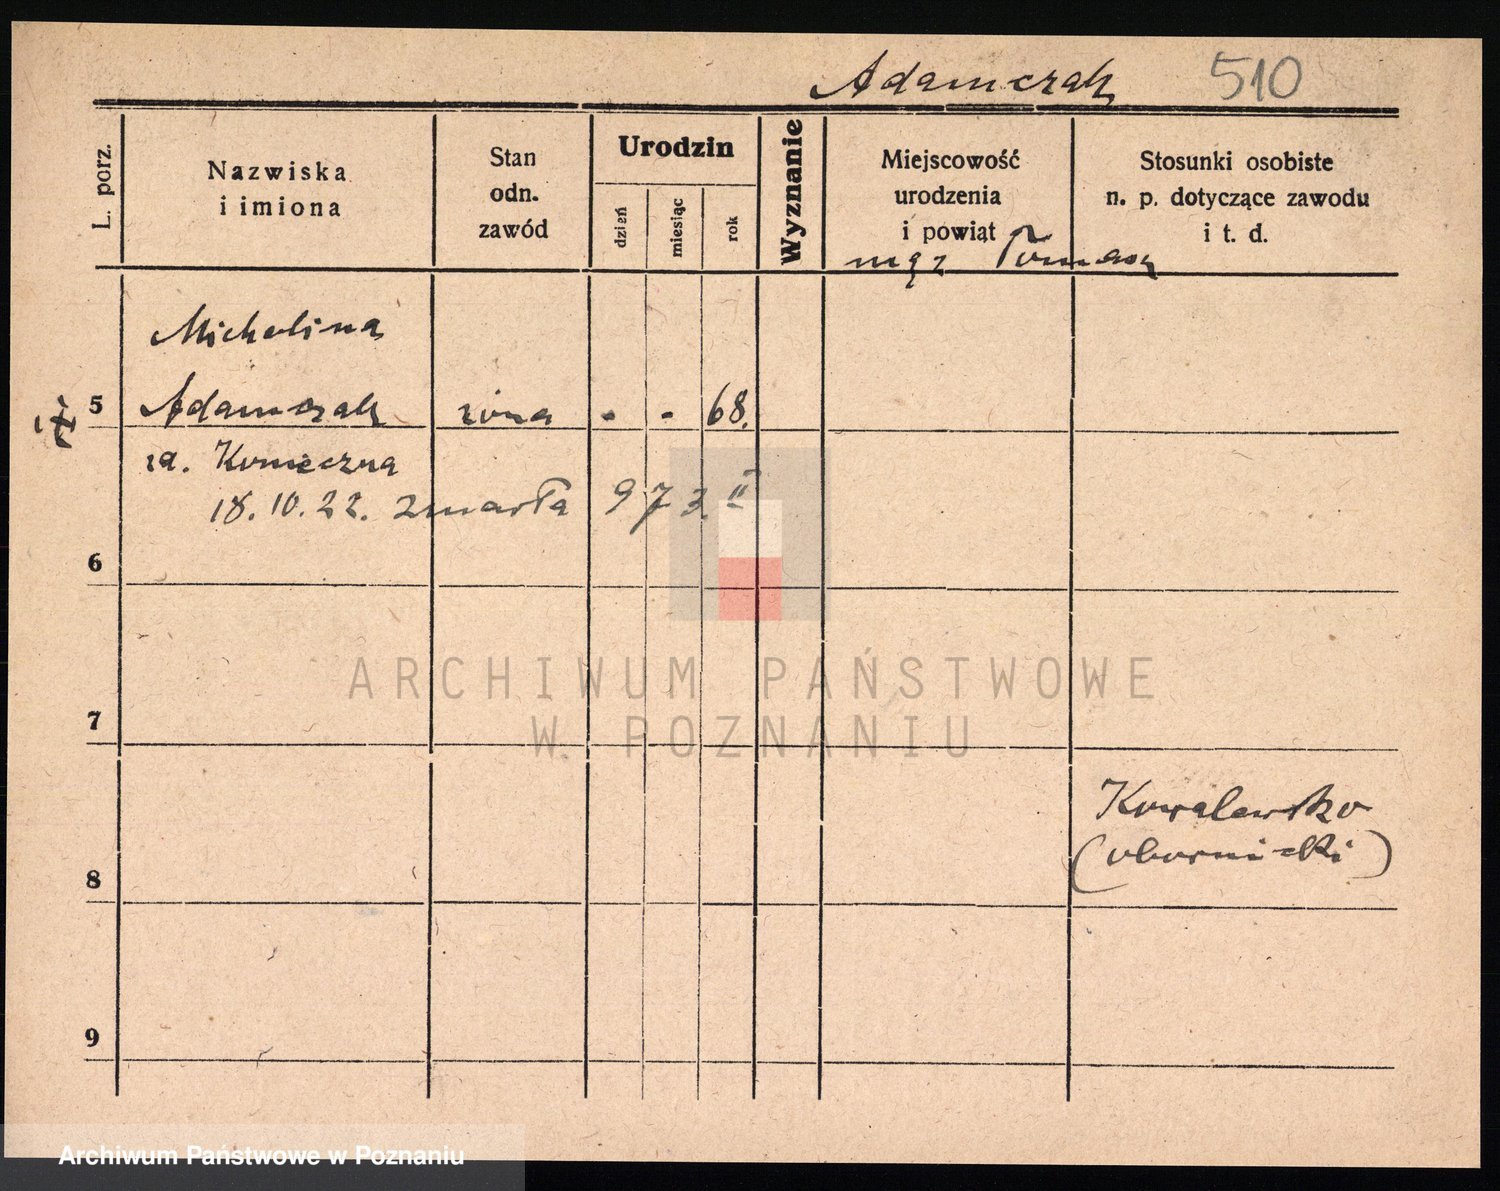 Adamczak 510
L. porz.
Nazwiska
i imiona
Stan
odn.
zawód
Urodzin
dzień
miesiąc
rok
Wyznanie
Miejscowość
urodzenia
i powiat
Stosunki osobiste
n. p. dotyczące zawodu
i t. d.
mąż Tomasz
Michalina
5 Adamczak żona - - 68.
za. Konieczna
18.10.22. zmarła 973 II
6
7
ARCHIWUM PAŃSTWOWE
W POZNANIU
Kowalewsko
(obornicki)
8
9
Archiwum Państwowe w Poznaniu